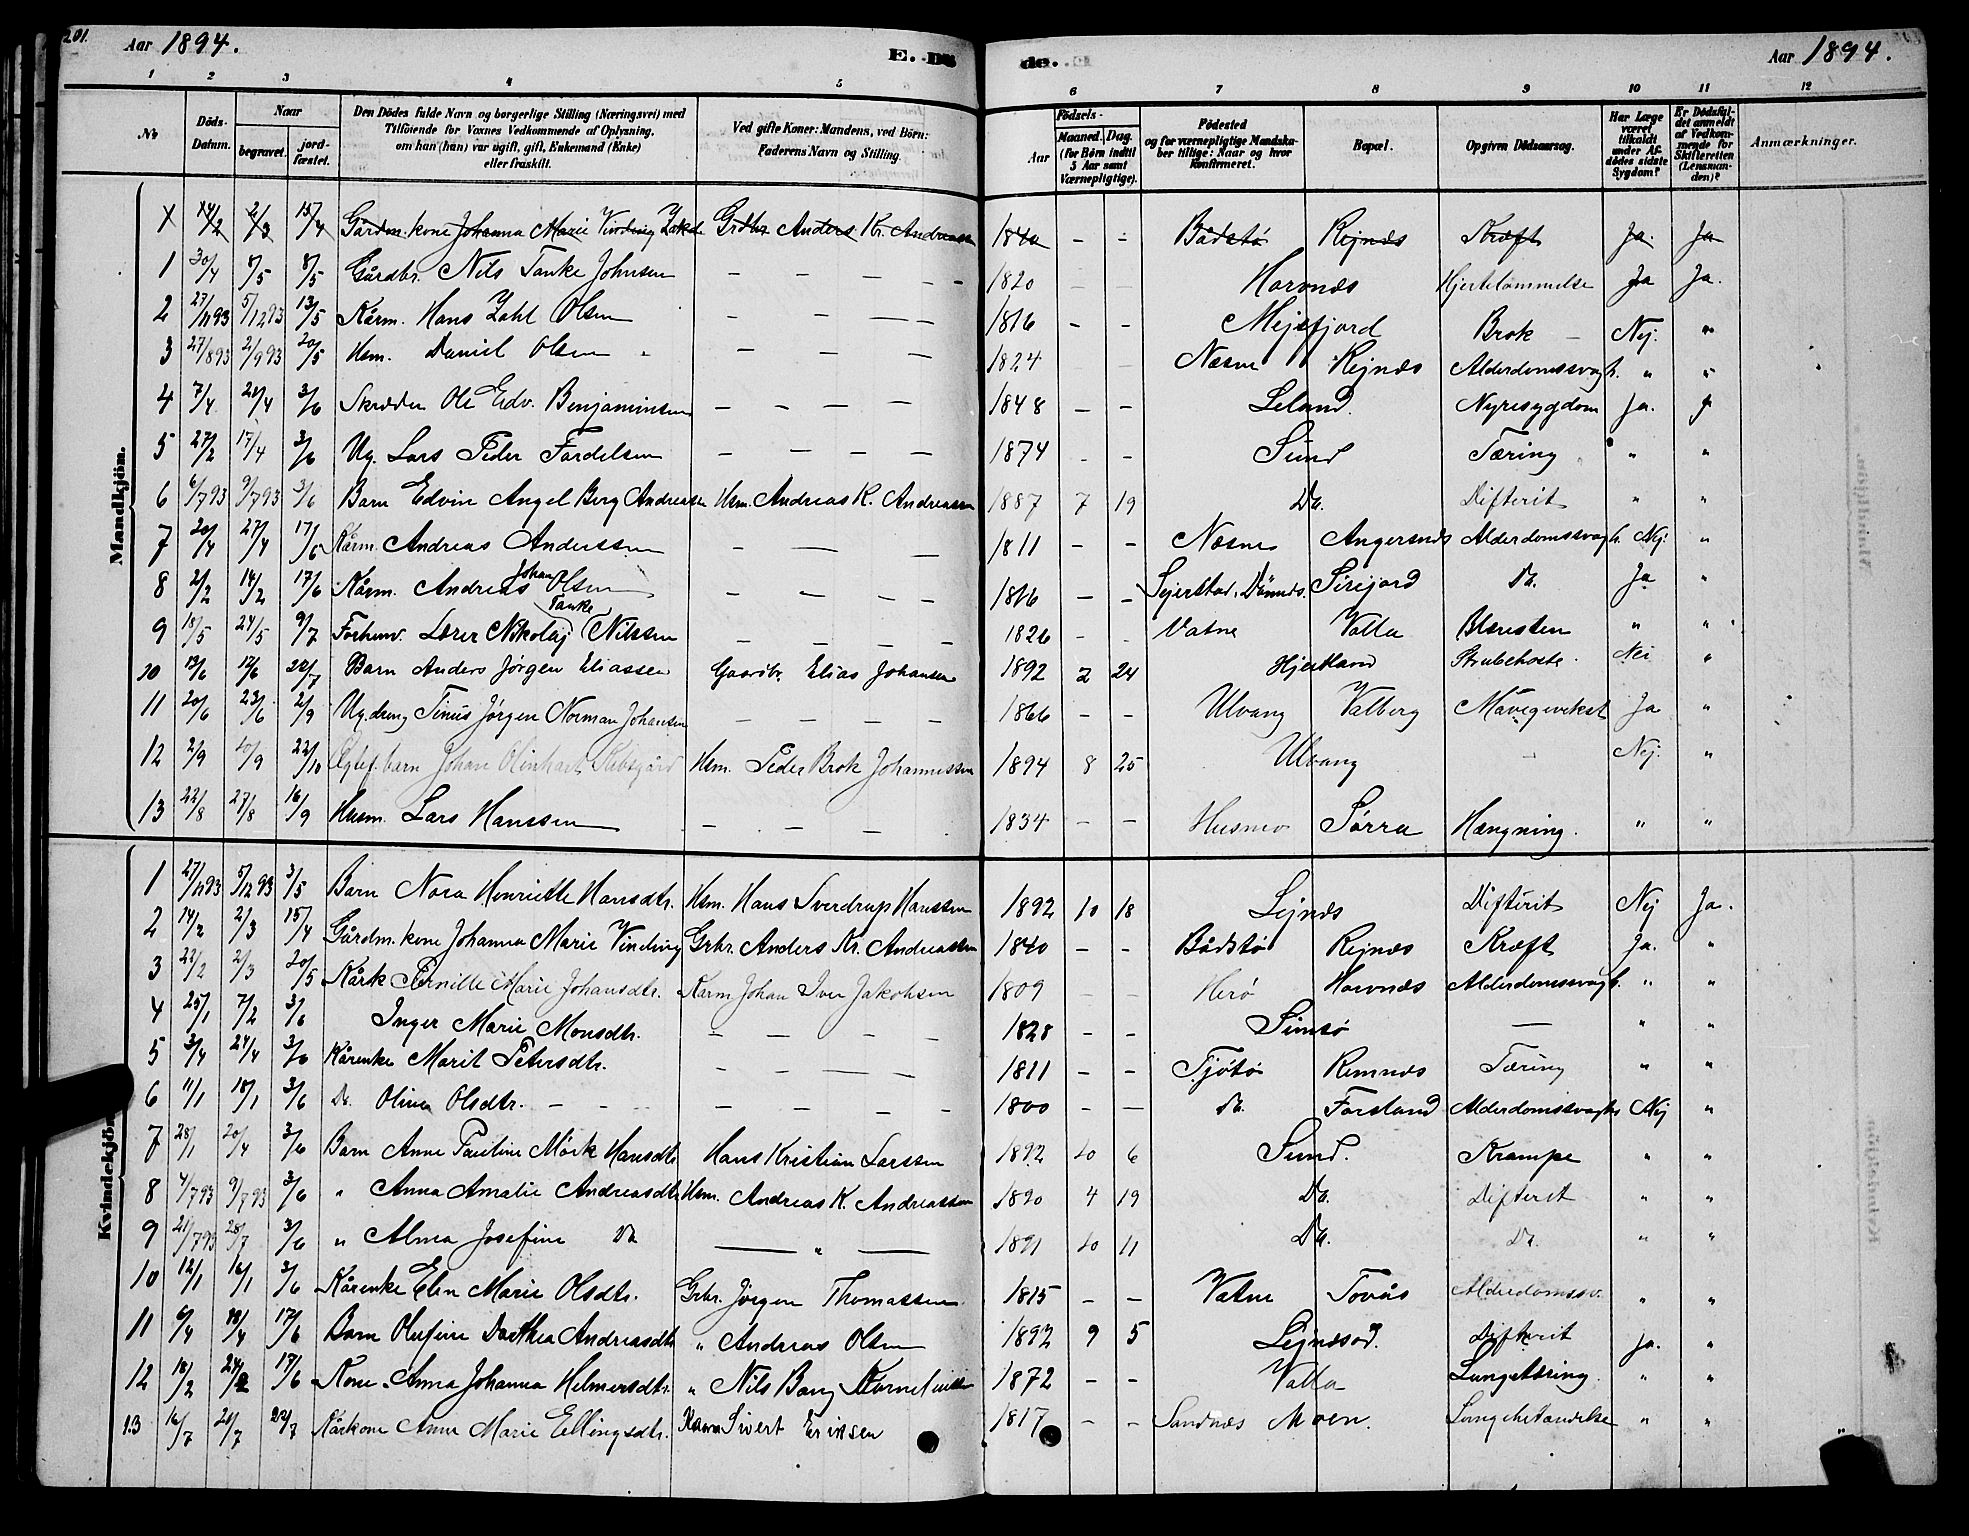 201.
Aar 1894.
E. Dö
de.
Aar 1894.
1 2 3 4 5 6 7 8 9 10 11 12
No
Döds-Datum.
Naar
begravet.
jord-fæstet.
Den Dödes fulde Navn og borgerlige Stilling (Næringsvei) med
Tilföiende for Voxnes Vedkommende af Oplysning,
om han (hun) var ugift, gift, Enkemand (Enke)
eller fraskilt.
Ved gifte Koner: Mandens, ved Börn:
Faderens Navn og Stilling.
Födsels-
Aar
Maaned. Dag.
(for Börn indtil
5 Aar samt
Værnepligtige).
Födested
og for værnepligtige Mandska-
ber tillige: Naar og hvor
Konfirmeret.
Bopæl.
Opgiven Dödsaarsag.
Har Læge
været
tilkaldt
under Af-
dödes sidste
Sygdom?
Er Dödsfal-
det anmeldt
af Vedkom-
mende for
Skifteretten
(Lensman-
den)?
Anmærkninger.
Mandkjön.
1 14/2 2/3 15/4 Gårdm. kone Johanna Marie Vinding Grdbr Anders Kr. Andreassen 1840 - - Bådstø Rejnæs Kræft Ja. Ja
1 30/4 8/5 8/5 Gårdbr. Nils Tanke Johnsen — — — - 1820 Horvnæs Hjertelammelse Ja Ja.
2 27/11 93 5/12 93 13/5 Kårm. Hans Zahl Olsen — — — 1816 - - Mejsfjord Brok Nej. "
3 27/8 93 2/9 93 20/5 Hsm. Daniel Olsen — — — — 1824 Næsne Rejnæs Alderdomssvagh. " "
4 7/4 21/4 3/6 Skrædder Ole Edv. Benjaminsen — — — — 1848 - - Leland. Nyresygdom Ja.
5 27/2 17/4 3/6 Ug. Lars Peder Fordelsen — — — — 1874 - - Sund Tæring " "
6 6/7 93 9/7 93 3/6 Barn Edvin Angel Berg Andreassen Hsm. Andreas K. Andreassen 1887 7 19 Do. Difterit " "
7 20/4 27/4 17/6 Kårm. Andreas Anderssen — — — 1811 - - Næsne Angersnæs Alderdomssvagh. Nej. "
8 2/2 14/2 17/6 Kårm. Andreas Johan Olsen — — — — 1816 - - Sejerstad, Dønnæs. Sirijord Do. Ja "
9 18/5 24/5 9/7 Forhenv. Lærer Nikolaj Tanke Nilssen — — — — 1826 - - Vatne Valla Blæresten " "
10 12/6 22/7 Barn Anders Jørgen Eliassen Gaardbr. Elias Johansen 1892 2 24 Hjertland Strubehoste. Nei "
11 20/6 23/6 2/9 Ug. dreng Tinus Jörgen Norman Johansen — — — — 1866 - - Ulvang Valberg Ja "
12 2/9 10/9 22/10 Hsm. Peder Brok Johannessen 1894 8 25 Ulvang — Nej. "
13 22/8 27/8 16/9 Husm. Lars Hanssen — — — 1834 - - Husmo Sørra Hængning. " "
Kvindekjön.
1 27/11 93 5/12 93 3/5 Barn Nora Henriette Hansdtr. Hsm. Hans Sverdrup Hanssen 1892 10 18 Lejnæs Difterit Nej Ja.
2 14/2 2/3 15/4 Gårdm. kone Johanna Marie Vinding Grbr. Anders Kr. Andreassen 1840 - - Bådstø Rejnæs Kræft Ja. "
3 22/2 2/3 20/5 Kårk Pernille Marie Johansdtr. Karm Johan Iver Jakobsen 1809 - - Herø Horvnæs Alderdomssvagh. " "
4 25/1 7/2 3/6 Inger Marie Monsdtr. — — — — 1828 - - Simsø — " "
5 3/4 24/4 3/6 Kårenke Marit Petersdtr. — — — — 1811 - - Tjøtø Remnæs Tæring " "
6 11/1 18/1 3/6 Do. Olina Olsdtr. — — — — 1800 - - do. Forsland Alderdomssvaghe Nej "
7 28/1 20/4 3/6 Barn Anne Pauline Mörk Hansdtr Hans Kristian Larssen 1892 10 6 Sund. Krampe " "
8 4/7 93 9/7 93 3/6 " Anna Amalie Andreasdtr Hsm. Andreas K. Andreassen 1890 4 19 Do. Difterit " "
9 21/7 93 28/7 3/6 " Alma Josefine Do — " — 1891 10 11 Do. Do. " "
10 12/1 16/1 3/6 Kårenke Elen Marie Olsdtr. Grbr. Jørgen Thomassen 1815 - - Vatne Tovås Alderdomssv. " "
11 6/4 18/4 17/6 Barn Olufine Dorthea Andreasdtr " Andreas Olsen 1892 9 5 Lejnæsod. Difterit Ja. "
12 18/2 24/2 17/6 Kone Anna Johanna Helmersdtr. " Nils Bang Korneliussen 1872 - - Valla Lungetæring. " "
13 16/7 20/7 22/7 Kårkone Anne Marie Ellingsdtr. Kaarm Sivert Eriksen 1817 - - Sandnæs Moen. Lungebetændelse " "